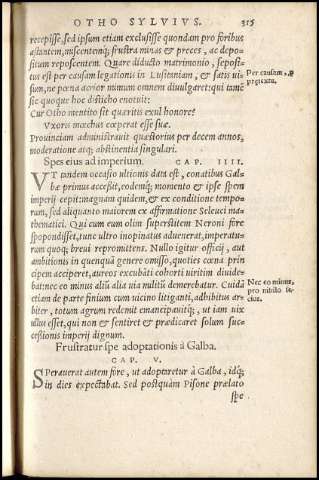 OTHO SYLVIUS. 315
recepisse, sed ipsum etiam exclusisse quondam pro foribus
astantem, miscentemq́; frustra minas & preces, ac depo-
situm reposcentem. Quare diducto matrimonio, seposi-
tus est per causam legationis in Lusitaniam, & satis ui-
sum, ne pœna acrior mimum omnem diuulgaret: qui tamē
sic quoque hoc disticho enotuit:
Per causam, p
prætextu.
Cur Otho mentito sit quæritis exul honore?
Vxoris mœchus cœperat esse suæ.
Prouinciam administrauit quæstorius per decem annos,
moderatione atq; abstinentia singulari.
Spes eius ad imperium. CAP. IIII.
VT tandem occasio ultionis data est, conatibus Gal-
bæ primus accessit, eodemq́; momento & ipse spem
imperij cepit: magnam quidem, & ex conditione tempo-
rum, sed aliquanto maiorem ex affirmatione Seleuci ma-
thematici. Qui cum eum olim superstitem Neroni fore
spopondisset, tunc ultro inopinatus aduenerat, imperatu-
rum quoq; breui repromittens. Nullo igitur officij, aut
ambitionis in quenquā genere omisso, quoties cœna prin
cipem acciperet, aureos excubāti cohorti uiritim diuide-
bat: nec eo minus aliū alia uia militū demerebatur. Cuidā
etiam de parte finium cum uicino litiganti, adhibitus ar-
biter, totum agrum redemit emancipauitq́;, ut iam uix
ullus esset, qui non & sentiret & prædicaret solum suc-
cessionis imperij dignum.
Nec eo minus,
pro nihilo se-
cius.
Frustratur spe adoptationis à Galba.
CAP. V.
SPerauerat autem fore, ut adoptaretur à Galba, idq́;
in dies expectabat. Sed postquàm Pisone prælato
spe